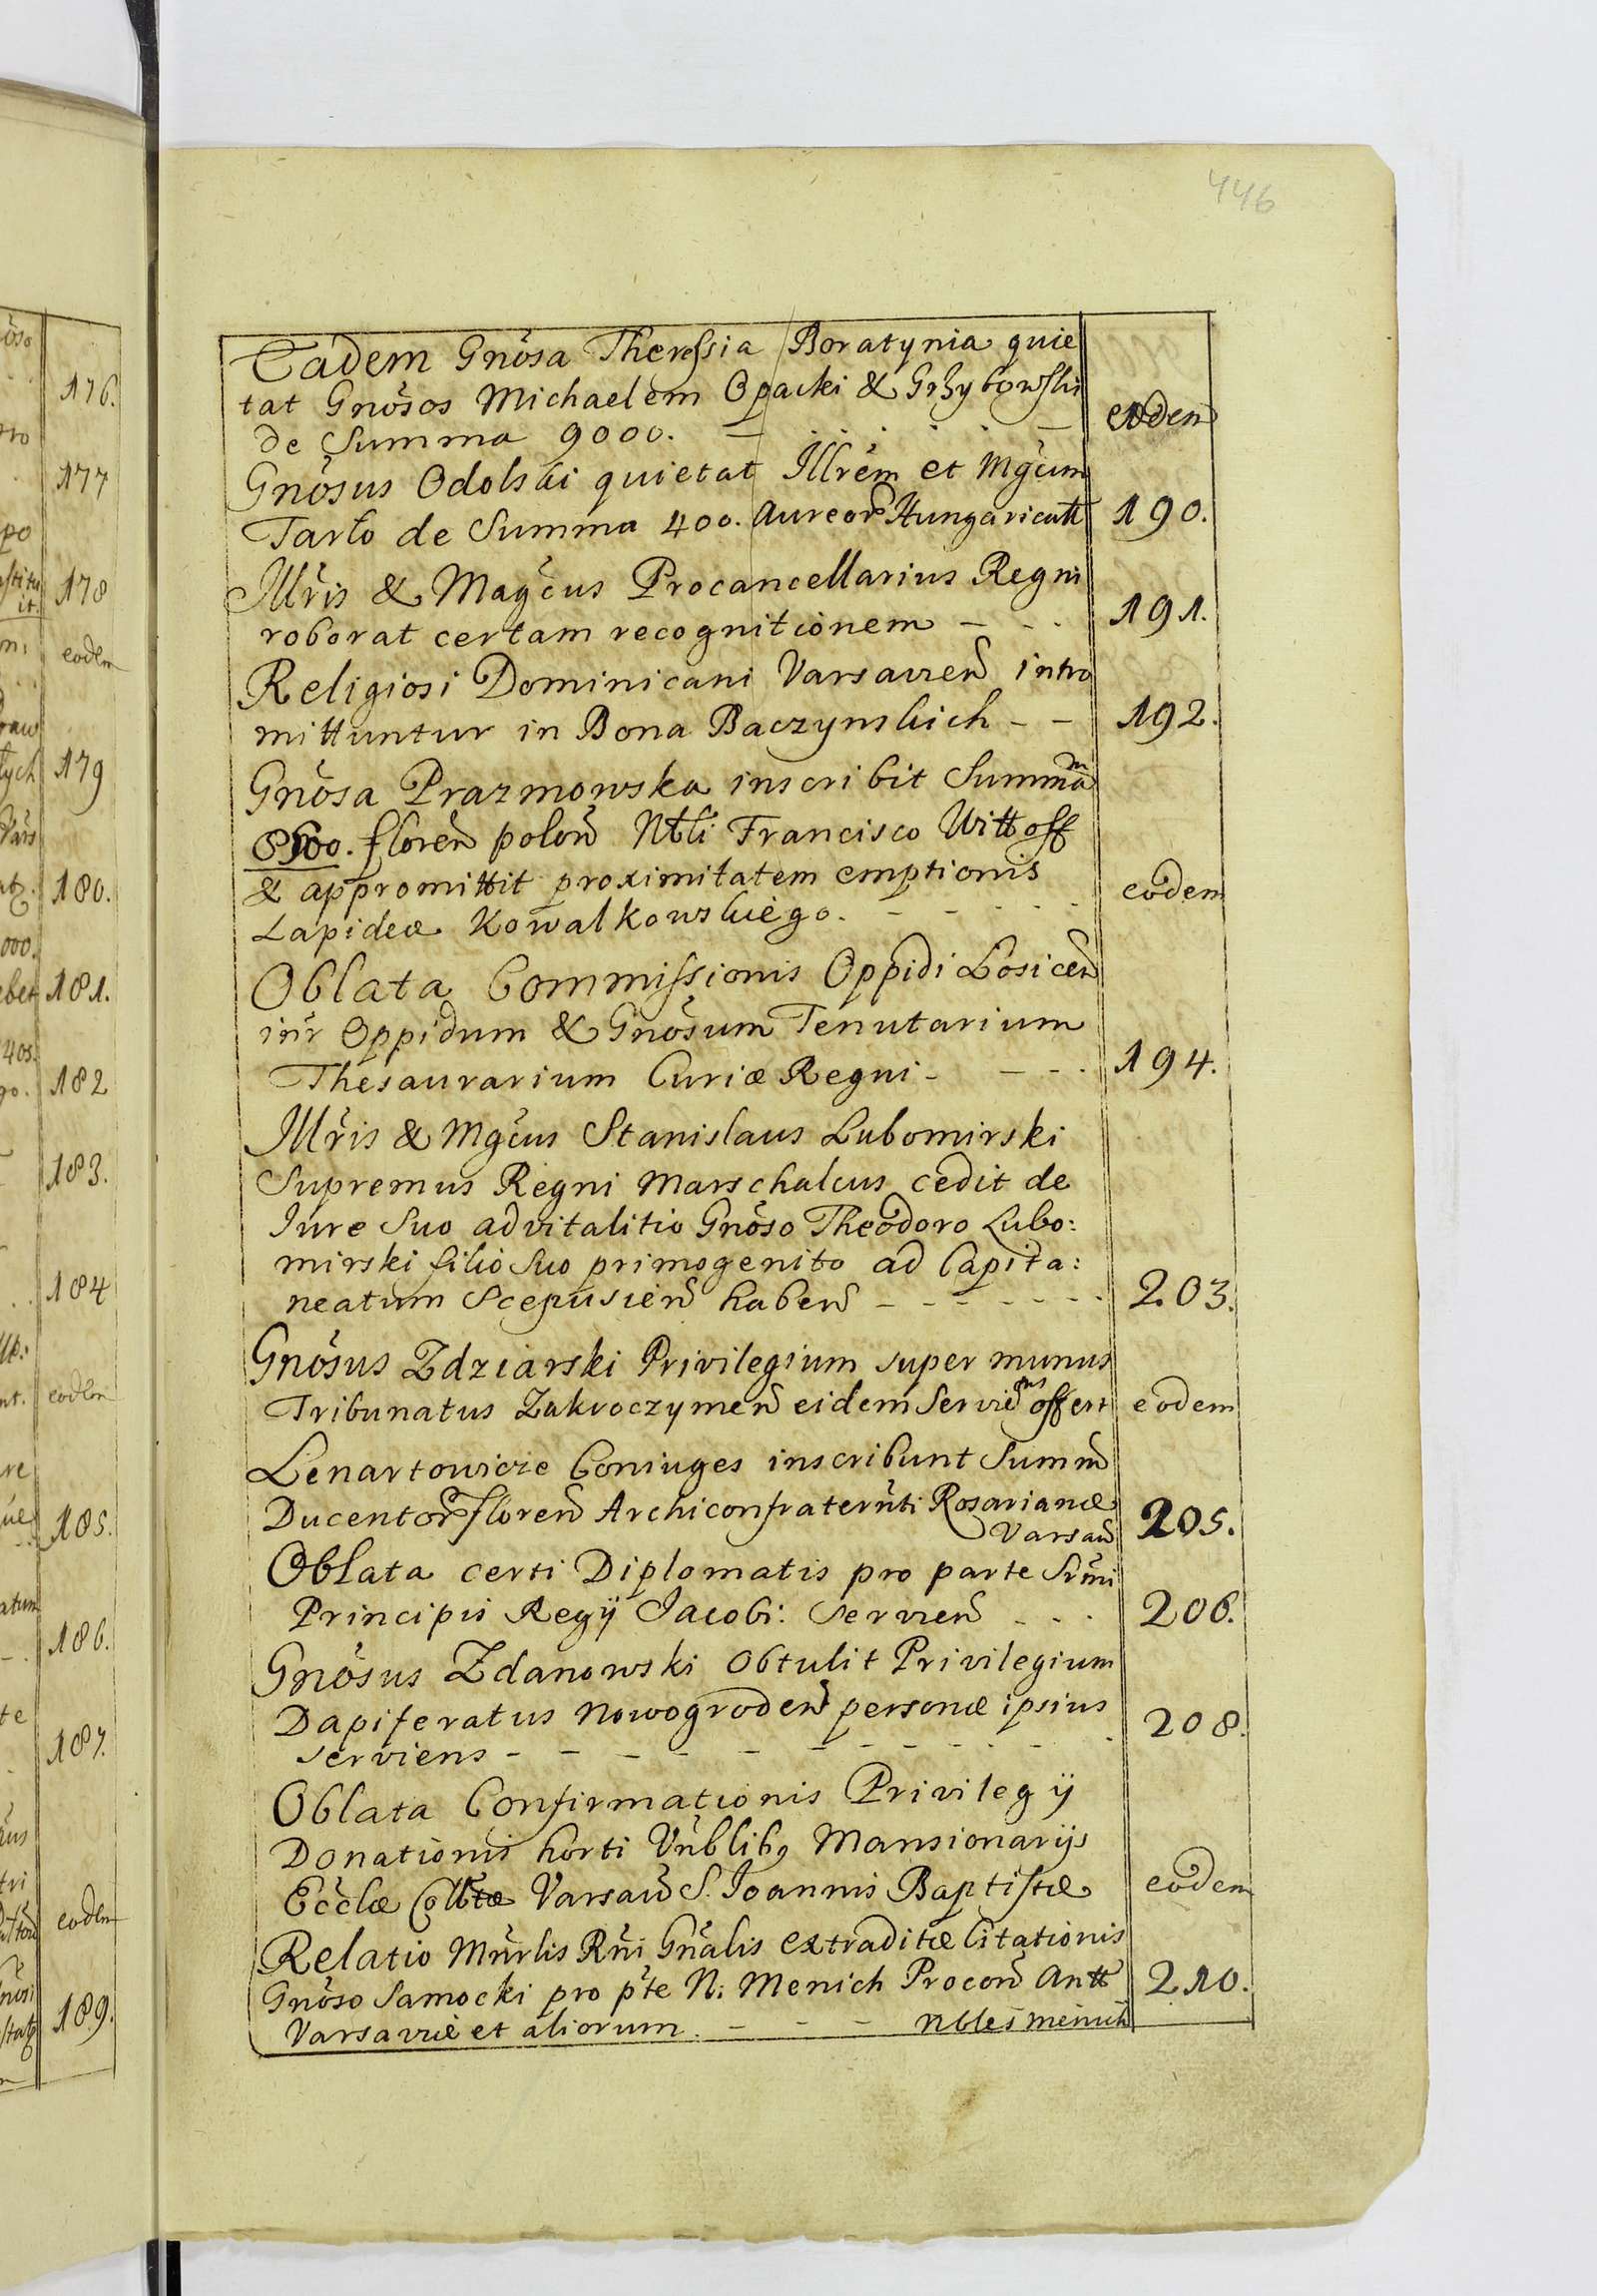 446
Eadem Gnosa Theressia Boratynia quie
tat Gnosos Michaelem Opacki & Grzybowski
de Summa 9000. eodem
Gnosus Odolski quietat Illrem et Mgcum
Tarło de Summa 400. Aureor Hungaricall 190.
Illris & Magcus Procancellarius Regni
roborat certam recognitionem 191.
Religiosi Dominicani Varsavien intro
mittuntur in Bona Baczynskich 192.
Gnosa Prazmowska inscribit Summam
floren polon Nbli Francisco Wittoff
& appromittit proximitatem emptionis
Lapideæ Kowalkowskiego. eodem
Oblata Commissionis Oppidi Łosicen
intr Oppidum & Gnosum Tenutarium
Thesaurarium Curiæ Regni 194.
Illris & Mgcus Stanislaus Lubomirski
Supremus Regni Marschalcus cedit de
Iure Suo advitalitio Gnoso Theodoro Lubo:
mirski filio Suo primogenito ad Capita:
neatum Scepusien haben 203.
Gnosus Zdziarski Privilegium super munus
Tribunatus Zakroczymen eidem Servien offert eodem
Lenartowicze Coniuges inscribunt Summ
Ducentor floren Archiconfraternti Rosarianæ
Varsav 205.
Oblata certi Diplomatis pro parte Srmi
Principis Regij Jacobi: Servien 206.
Gnosus Zdanowski obtulit Privilegium
Dapiferatus Nowogroden personæ ipsius
serviens 208.
Oblata Confirmationis Privilegij
Donationis horti Vnblibg Mansionarijs
Ecclæ Colltæ Varsav S. Joannis Baptistæ eodem
Relatio Mnrlis Rni Gnalis extraditæ Citationis
Gnoso Samocki pro pte N: Menich Procon Antt 210.
Varsaviæ et aliorum. Nbles Menich
176.
177
178
eodem
179
180.
181.
182
183.
184
eodem
185.
186.
187.
eodem
189.